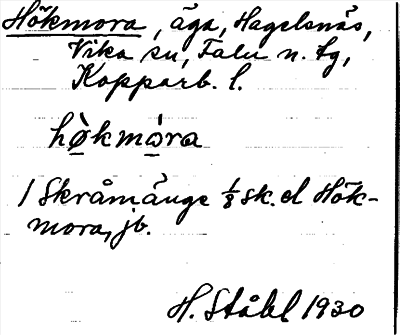 Hökmora, äga, Hagelsnäs,
Vika sn, Falu n. tg,
Kopparb. l.
hø̀kmóra
1 Skråmänge ⅛ sk. el Hök-
mora, jb.
H. Ståhl 1930